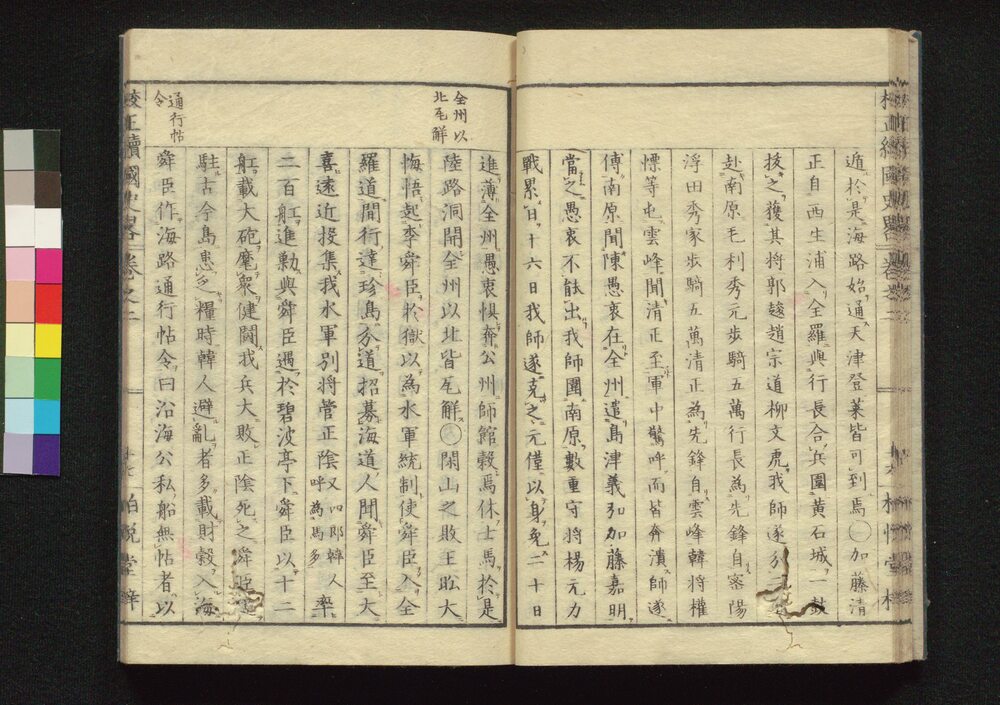 遁於是海路始通天津登萊皆可到焉○加藤清
正自西生浦入全羅與行長合兵圍黃石城一鼓
拔之獲其將郭䞭趙宗道柳文虎我師遂分
赴南原毛利秀元步騎五萬行長為先鋒自密陽
浮田秀家步騎五萬清正為先鋒自雲峰韓將權
慄等屯雲峰聞清正至軍中驚呼而皆奔潰師遂
傅南原聞陳愚衷在全州遣島津義弘加藤嘉明
當之愚衷不能出我師圍南原數重守將楊元力
戰累日十六日我師遂克之元僅以身免二十日
全州以
北瓦解
進薄全州愚衷懼奔公州師館穀焉休士馬於是
陸路洞開全州以北皆瓦解○閑山之敗王昖大
悔悟起李舜臣於獄以為水軍統制使舜臣入全
羅道間行達珍島分道招募海道人聞舜臣至大
喜遠近投集我水軍別將管正陰又四郎韓人呼為馬多率
二百舡進勦與舜臣遇於碧波亭下舜臣以十二
舡載大砲麾衆健鬪我兵大敗正陰死之舜臣
駐古今島患乏糧時韓人避亂者多載財穀入海
通行帖
令
舜臣作海路通行帖令曰沿海公私船無帖者以
校正續國史略 卷之二